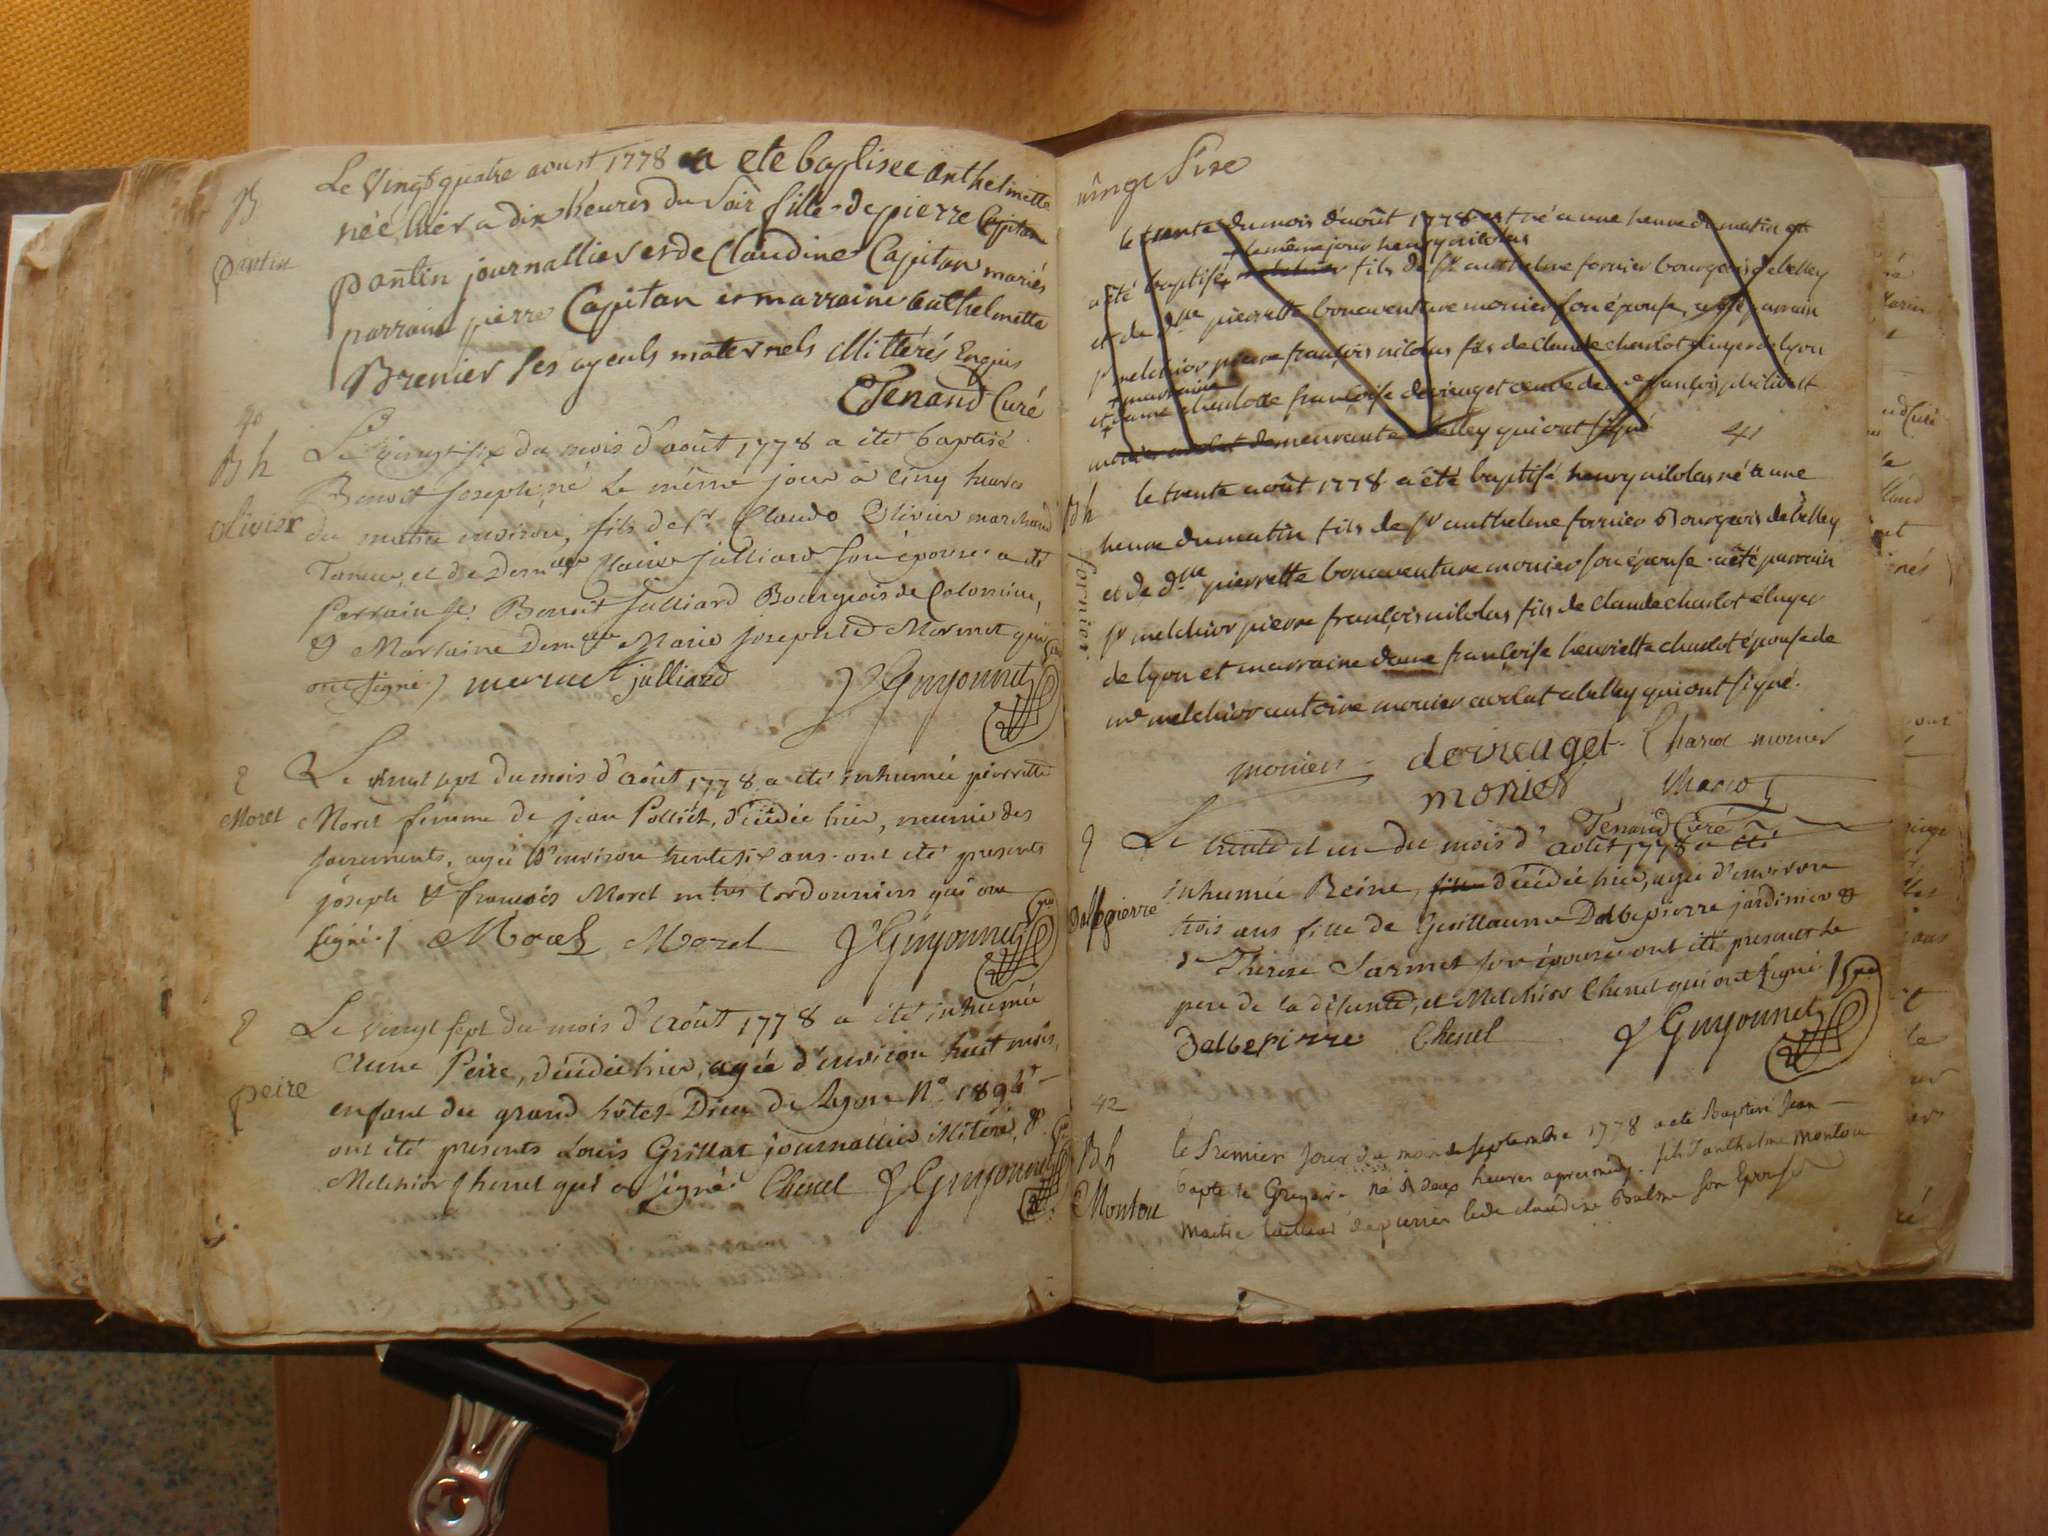 B
Pantin
Le Vingt quatre aoust 1778 a ete baptisee anthelmette
née hier a dix heures du soir fille de pierre Capitan
pantin journallier et de Claudine Capitan mariés
parrain pierre Capitan et marraine anthelmette
Brenier ses ayeuls maternels illitterés Enquis
Tenand Curé
40
B h
olivier
Le vingt six du mois d'août 1778 a été baptisé
Benoit Joseph, né le même jour à cinq heures
du matin environ, fils de sr. Claude Olivier marchand
Taneur, et de Demlle Claire Julliard son épouse a été
Parrain sr. Benoit Julliard Bourgeois de Colomieu,
& Marraine Demlle Marie josephte Mermet qui
ont signé./ mermet julliard J Guyonnet
Morel
Le vingt sept du mois d'août 1778 a été inhumée pierrette
Morel femme de jean Polliet, décédée hier, munie des
sacrements, agée d'environ trente six ans. ont été presents
joseph & francois Morel mtres Cordonniers qui ont
signé./ Morel Morel J Guyonnet
peire
Le vingt sept du mois d'août 1778 a été inhumée
Anne Peire, décédée hier, agée d'environ huit mois,
enfant du grand hôtel-Dieu de Lyon N° 1894
ont été presents Louis Grillat journallier illiteré, &
Melchior Chenel qui a signé. Chenel J Guyonnet
vingt Sixe
le trente du mois d'août 1778 est né a une heure du matin et
le même jour henry nicolas
a été baptisé fils de sr anthelme fornier bourgeois de belley
et de dlle pierrette bonaventure monier son épouse, a été parrain
sr melchior pierre françois nicolas fils de Claude charlot eluyer de lyon
+ marraine
et dame charlotte françoise devieuget veuve de me françois philibert
monier avocat demeurante a belley qui ont signé
41
B h
fornier
le trente août 1778 a été baptisé henry nicolas né a une
heure du matin fils de sr anthelme fornier Bourgeois de belley
et de dlle pierrette bonaventure monier son épouse. a été parrain
sr melchior pierre françois nicolas fils de claude charlot éluyer
de lyon et marraine dame françoise henriette charlot épouse de
me melchior antoine monier avocat a belley qui ont signé.
moniers devieuget. Charlot monier
monier Charlot
Tenand Curé
Dalbepierre
Le trente et un du mois d'août 1778 a été
inhumée Reine, décédée hier, agée d'environ
trois ans fille de Guillaume Dalbepierre jardinier &
de Therese Sarmet son épouse ont été presents le
pere de la défunte, et Melchior Chenel qui ont signé./
Dalbepierre Chenel J Guyonnet
42
B h
Montou
le Premier Jour du mois de septembre 1778 a ete Baptisé Jean
baptiste Gregoire né à deux heures apres midy. fils d'anthelme Montou
Maitre tailleur de pierres et de claudine Balme son Epouse